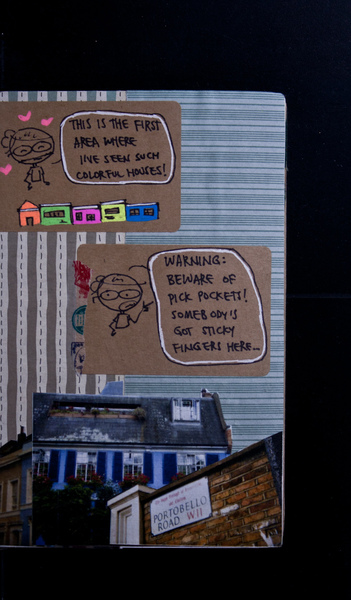 THIS IS THE FIRST
AREA WHERE
I'VE SEEN SUCH
COLORFUL HOUSES!
WARNING:
BEWARE OF
PICK POCKETS!
SOMEBODY'S
GOT STICKY
FINGERS HERE...
PORTOBELLO
ROAD W11